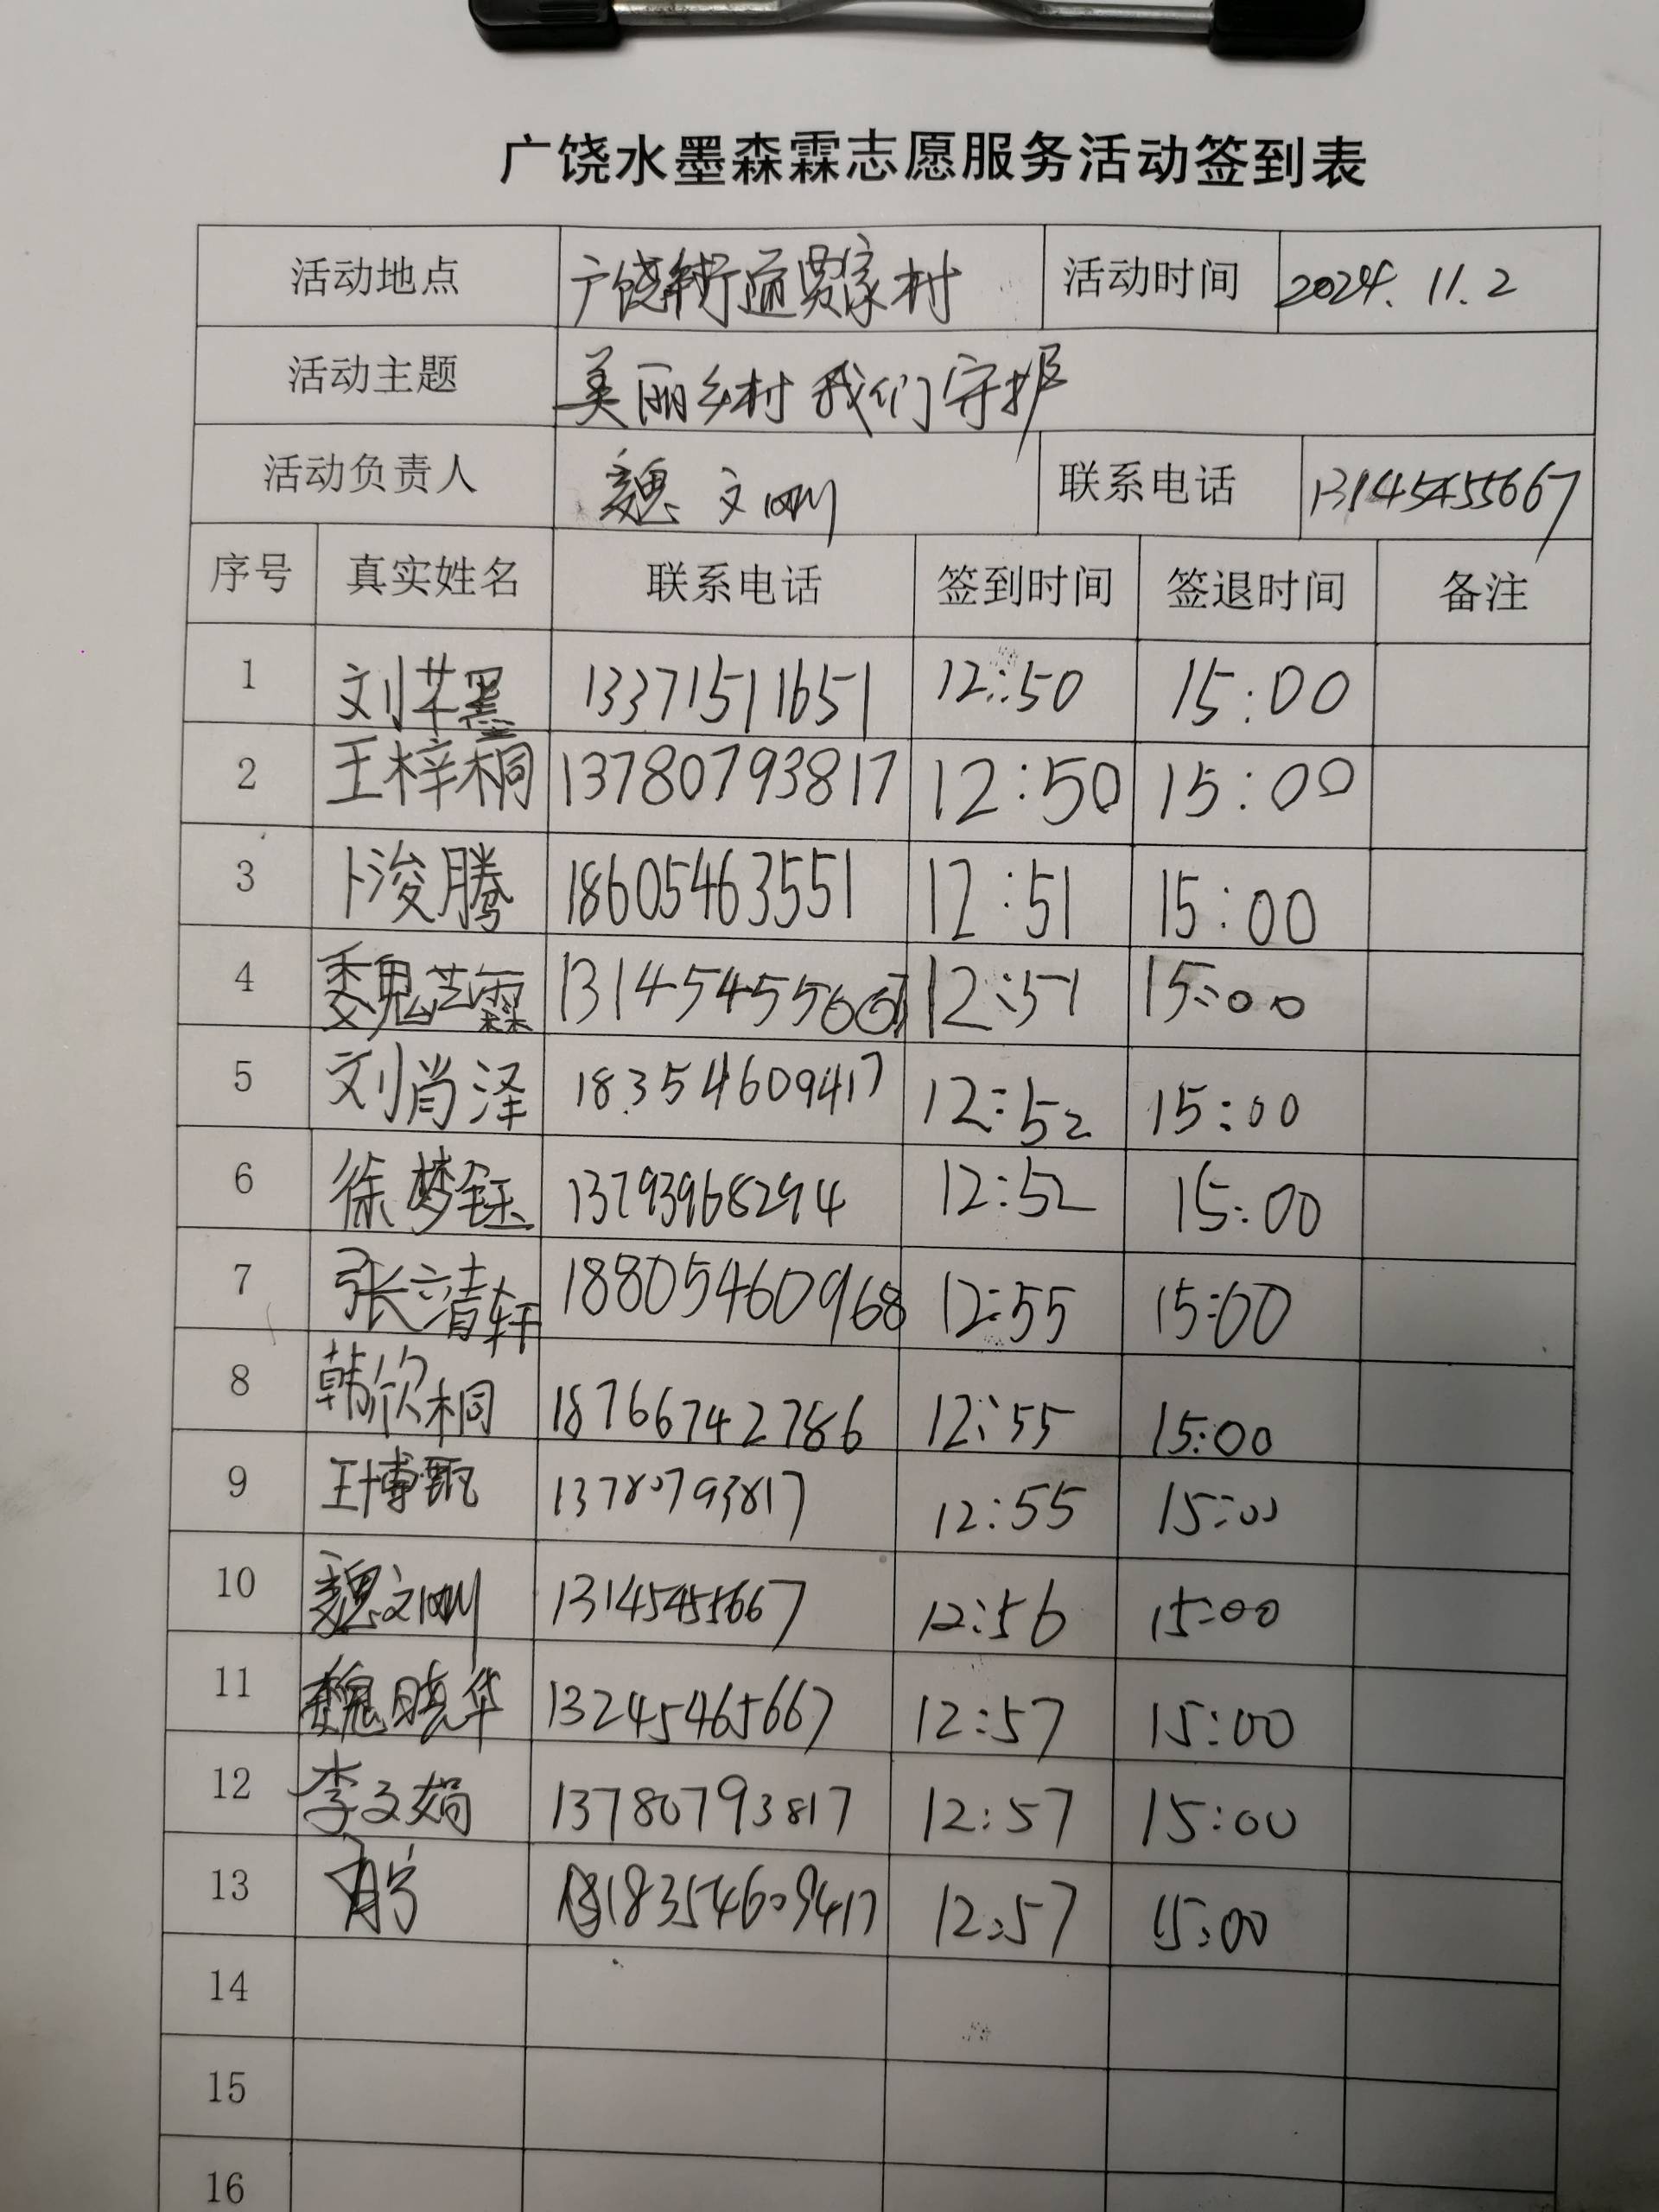 广饶水墨森霖志愿服务活动签到表
活动地点 广饶街道贾家村 活动时间 2024.11.2
活动主题 美丽乡村 我们守护
活动负责人 魏文刚 联系电话 13145455667
序号 真实姓名 联系电话 签到时间 签退时间 备注
1 刘芊墨 13371511651 12:50 15:00
2 王梓桐 13780793817 12:50 15:00
3 卜浚腾 18605463551 12:51 15:00
4 魏芷霖 13145455667 12:51 15:00
5 刘肖泽 18354609417 12:52 15:00
6 徐梦钰 13793968294 12:52 15:00
7 张清轩 18805460968 12:55 15:00
8 韩欣桐 18766742786 12:55 15:00
9 王博甄 13780793817 12:55 15:00
10 魏文刚 13145455667 12:56 15:00
11 魏晓华 13245465667 12:57 15:00
12 李文娟 13780793817 12:57 15:00
13 18354609417 12:57 15:00
14
15
16